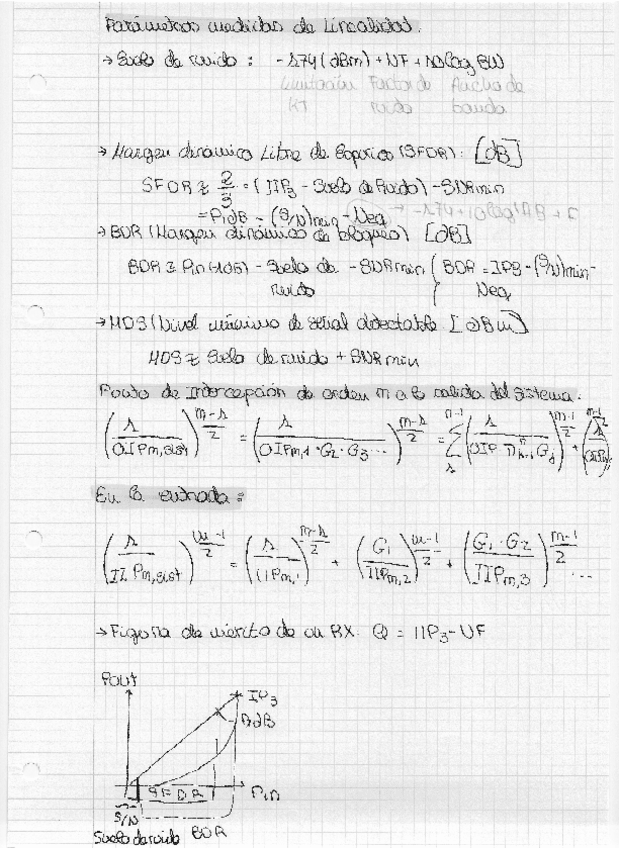 Parámetros medidas de Linealidad.
→ Suelo de ruido : -174 (dBm) + NF + 10log BW
Factor de Ancho de
KT ruido banda
→ Margen dinámico Libre de Espúrios (SFDR): [dB]
SFDR ≈ 2/3 = (IIP3 - Suelo de Ruido) - SNRmin
= P1dB - (S/N)min - Neq → -174 + 10log
→ BDR (Margen dinámico de bloqueo) [dB]
BDR ≈ Pin(1dB) - Suelo de ruido - SNRmin { BDR = - (S/N)min - Neq
→ MDS (Nivel mínimo de señal detectable [dBm]
MDS ≈ Suelo de ruido + SNRmin
Punto de Intercepción de orden m a la salida del sistema.
(1/OIPm,sist)^(m-1)/2 = (1/OIPm,1·G2·G3···)^(m-1)/2 =
En la entrada :
(1/IIPm,sist)^(m-1)/2 = (1/IIPm,1)^(m-1)/2 + (G1/IIPm,2)^(m-1)/2 + (G1·G2/IIPm,3)^(m-1)/2 ...
→ Figura de mérito de un RX. Q = IIP3 - NF
Pout
IP3
P1dB
SFDR Pin
S/N
Suelo de ruido BDR